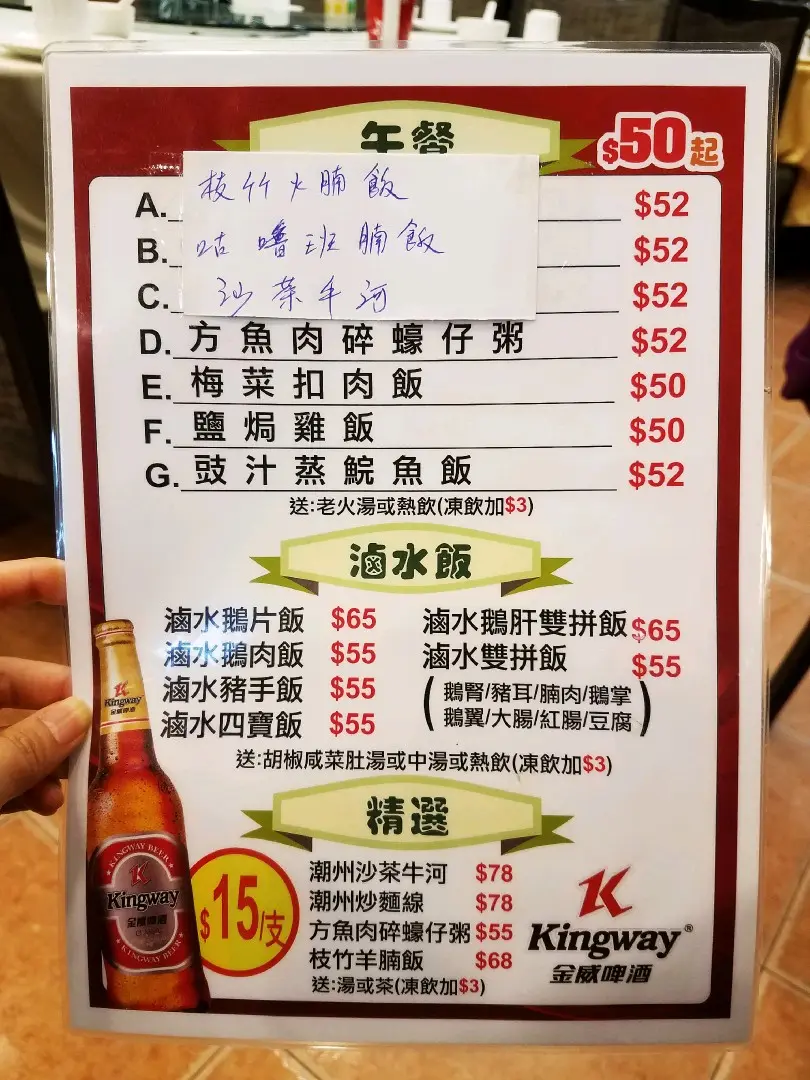 午餐
$50起
A. 枝竹火腩飯 $52
B. 咕嚕班腩飯 $52
C. 沙茶牛河 $52
D. 方魚肉碎蠔仔粥 $52
E. 梅菜扣肉飯 $50
F. 鹽焗雞飯 $50
G. 豉汁蒸鯇魚飯 $52
送:老火湯或熱飲(凍飲加$3)
滷水飯
滷水鵝片飯 $65
滷水鵝肉飯 $55
滷水豬手飯 $55
滷水四寶飯 $55
滷水鵝肝雙拼飯 $65
滷水雙拼飯 $55
(鵝腎/豬耳/腩肉/鵝掌
鵝翼/大腸/紅腸/豆腐)
送:胡椒咸菜肚湯或中湯或熱飲(凍飲加$3)
精選
潮州沙茶牛河 $78
潮州炒麵線 $78
方魚肉碎蠔仔粥 $55
枝竹羊腩飯 $68
送:湯或茶(凍飲加$3)
$15/支
Kingway
金威啤酒
KINGWAY BEER
Kingway
金威啤酒
KINGWAY BEER
Kingway®
金威啤酒